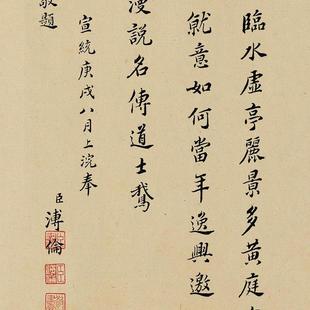 臨水虛亭麗景多黃庭
就意如何當年逸興邀
漫說名傳道士鵝
宣統庚戌八月上浣奉
敬題
臣溥倫